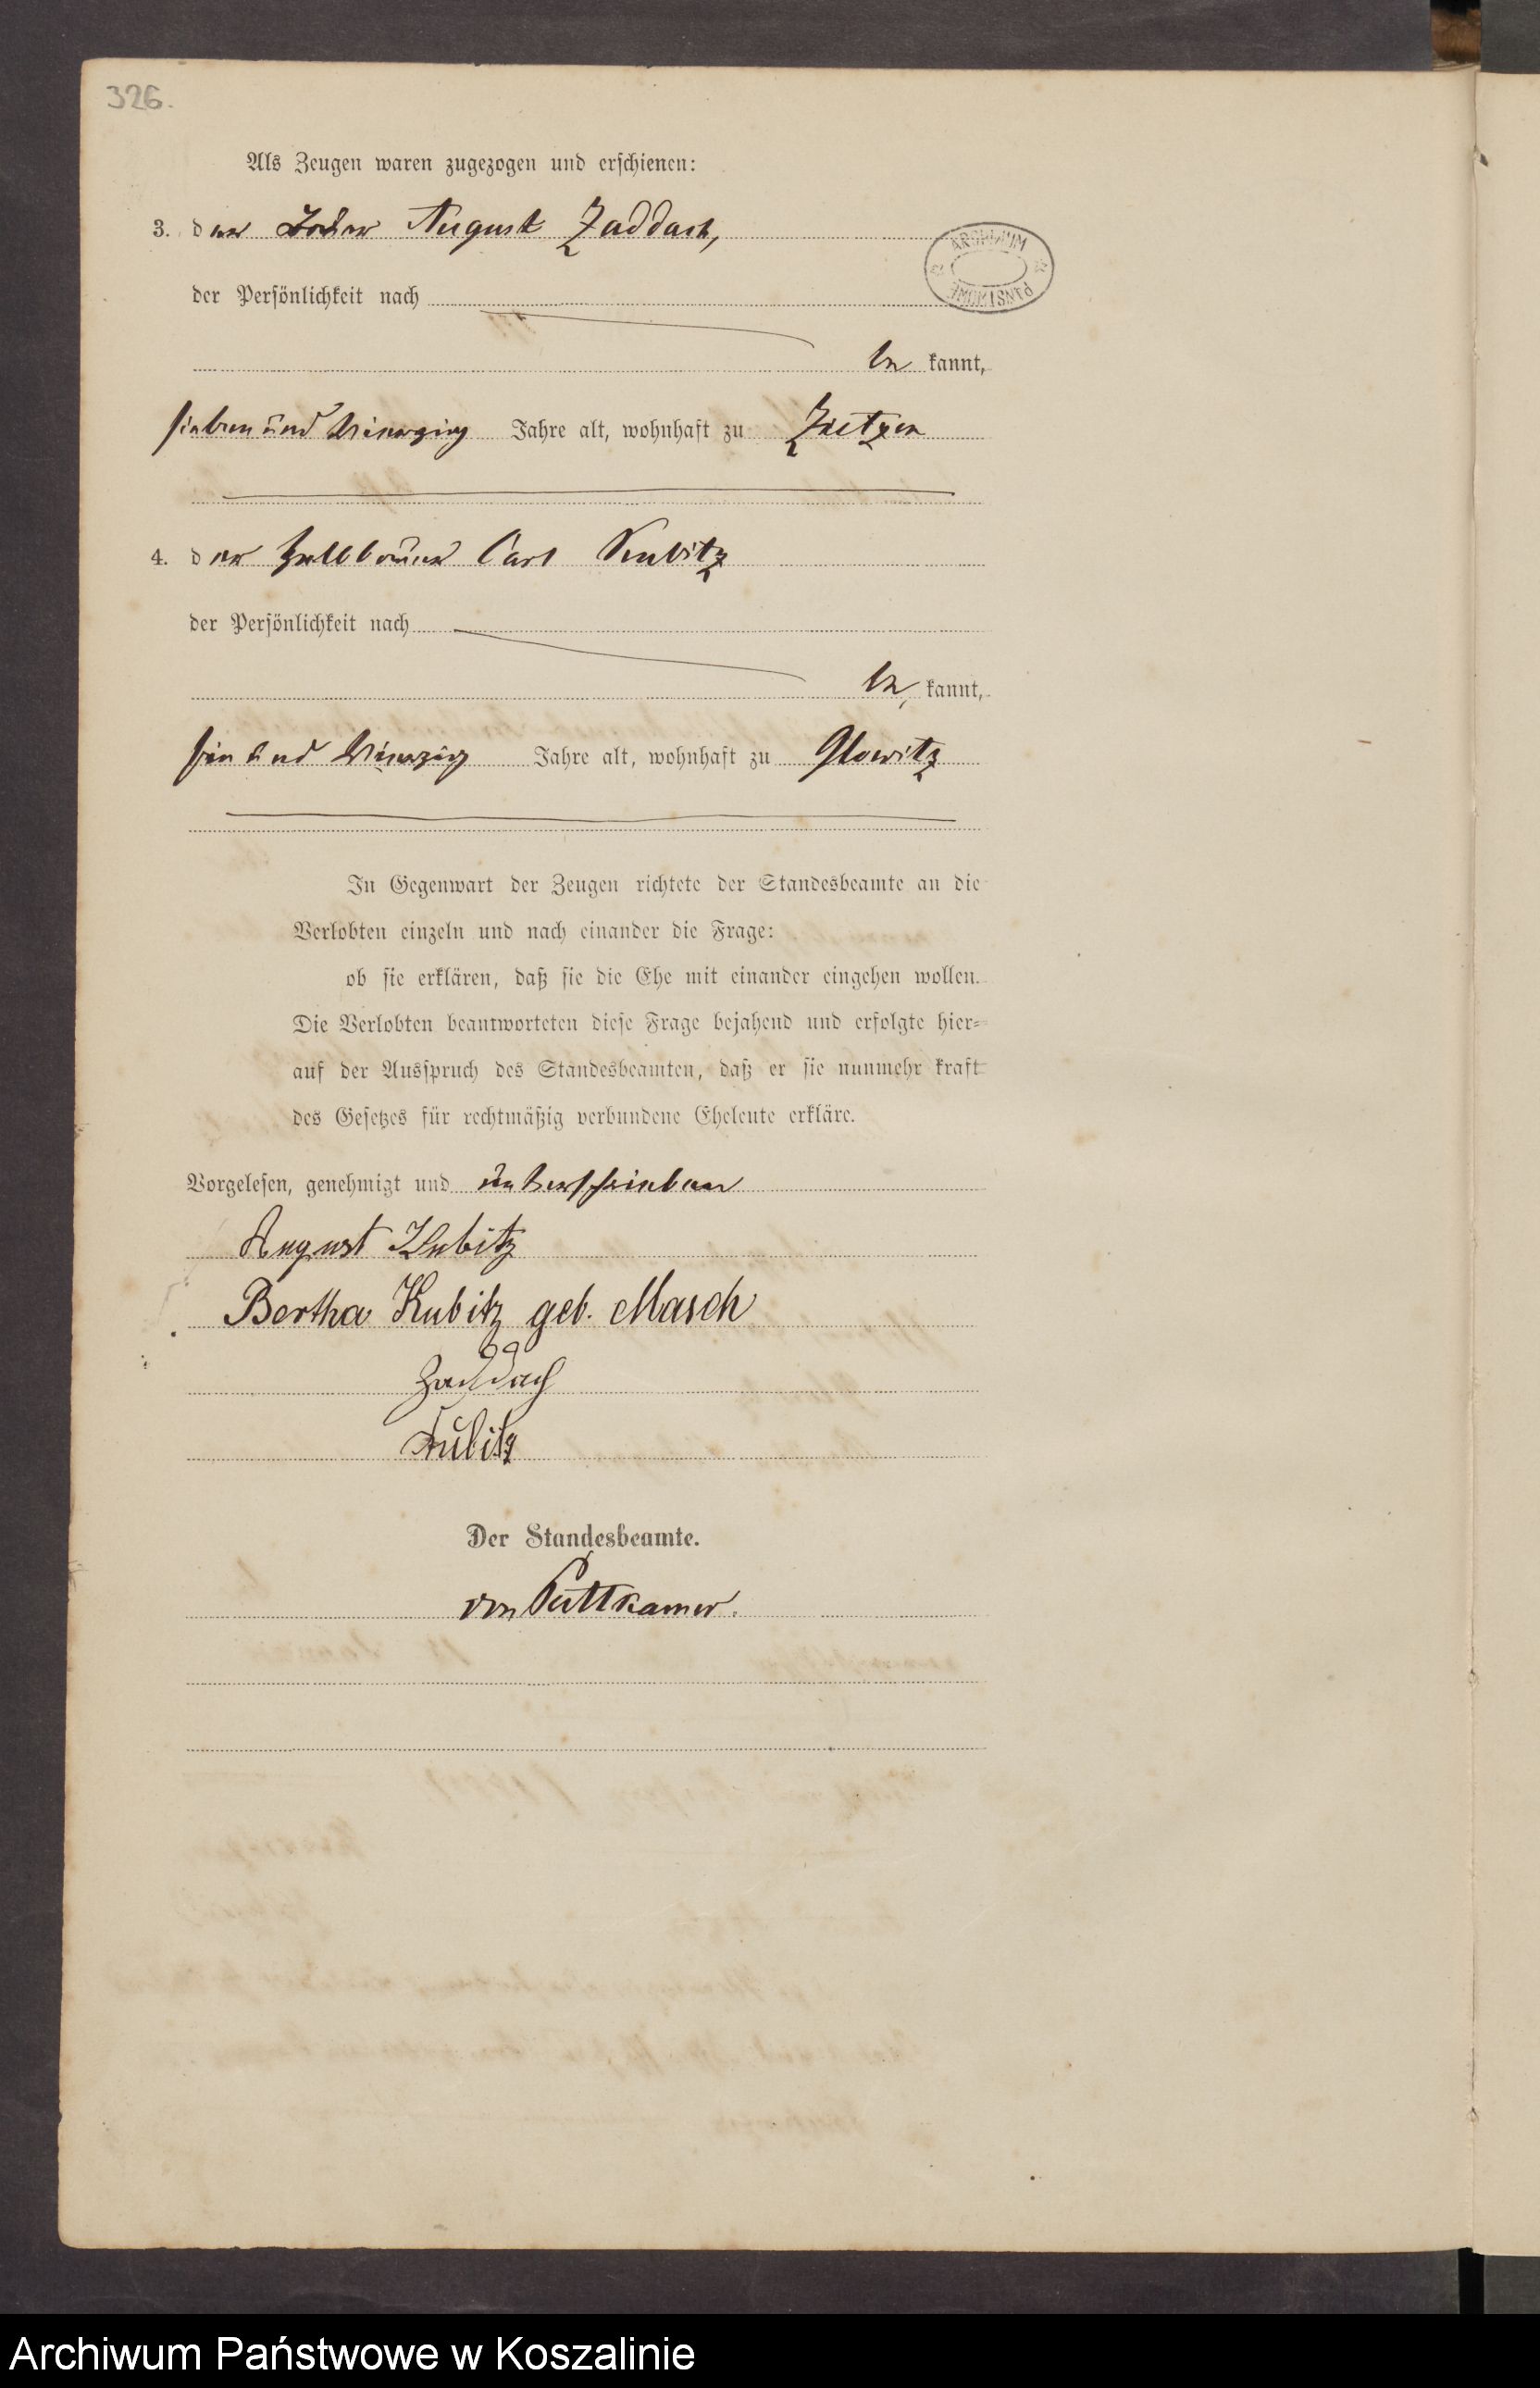 326.
Als Zeugen waren zugezogen und erschienen:
3. der August Zaddach,
der Persönlichkeit nach
be kannt,
sieben und vierzig Jahre alt, wohnhaft zu Zietzen
4. der Halbbauer Carl Kubitz
der Persönlichkeit nach
be kannt,
ein und vierzig Jahre alt, wohnhaft zu Glowitz
In Gegenwart der Zeugen richtete der Standesbeamte an die
Verlobten einzeln und nach einander die Frage:
ob sie erklären, daß sie die Ehe mit einander eingehen wollen.
Die Verlobten beantworteten diese Frage bejahend und erfolgte hier-
auf der Ausspruch des Standesbeamten, daß er sie nunmehr kraft
des Gesetzes für rechtmäßig verbundene Eheleute erkläre.
Vorgelesen, genehmigt und unterschrieben
August Kubitz
Bertha Kubitz geb. Masch
Zaddach
Kubitz
Der Standesbeamte.
von Puttkamer.
ARCHIWUM
PAŃSTWOWE
Archiwum Państwowe w Koszalinie